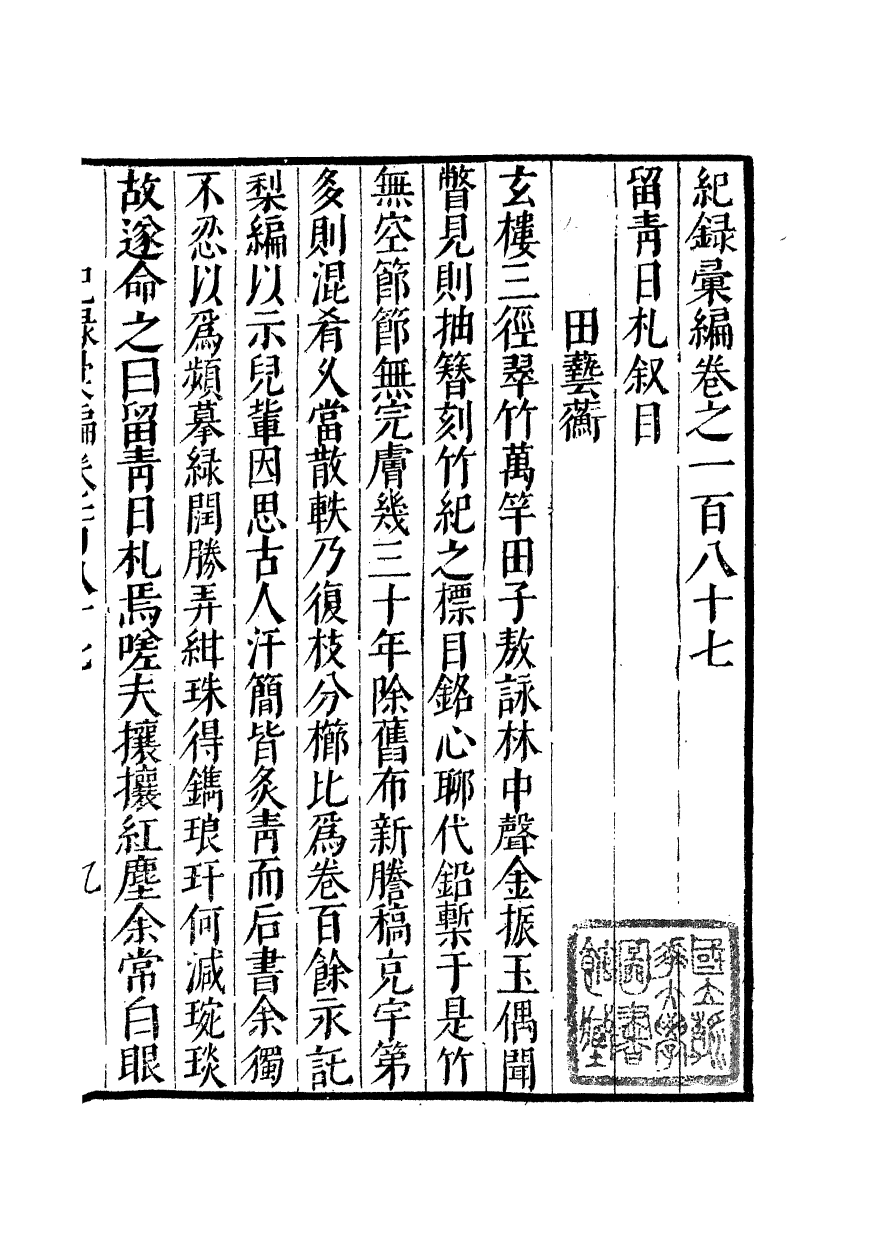 紀録彙編卷之一百八十七
留靑日札叙目
田藝蘅
玄樓三徑翠竹萬竿田子敖詠林中聲金振玉偶聞
瞥見則抽簪刻竹紀之標目銘心聊代鉛槧于是竹
無空節節無完膚幾三十年除舊布新謄稿充宇第
多則混肴乆當散軼乃復枝分櫛比爲卷百餘永託
梨編以示兒輩因思古人汗簡皆炙靑而后書余獨
不忍以爲頻摹緑閏勝弄紺珠得鐫琅玕何減琬琰
故遂命之曰留靑日札焉嗟夫攘攘紅塵余常白眼